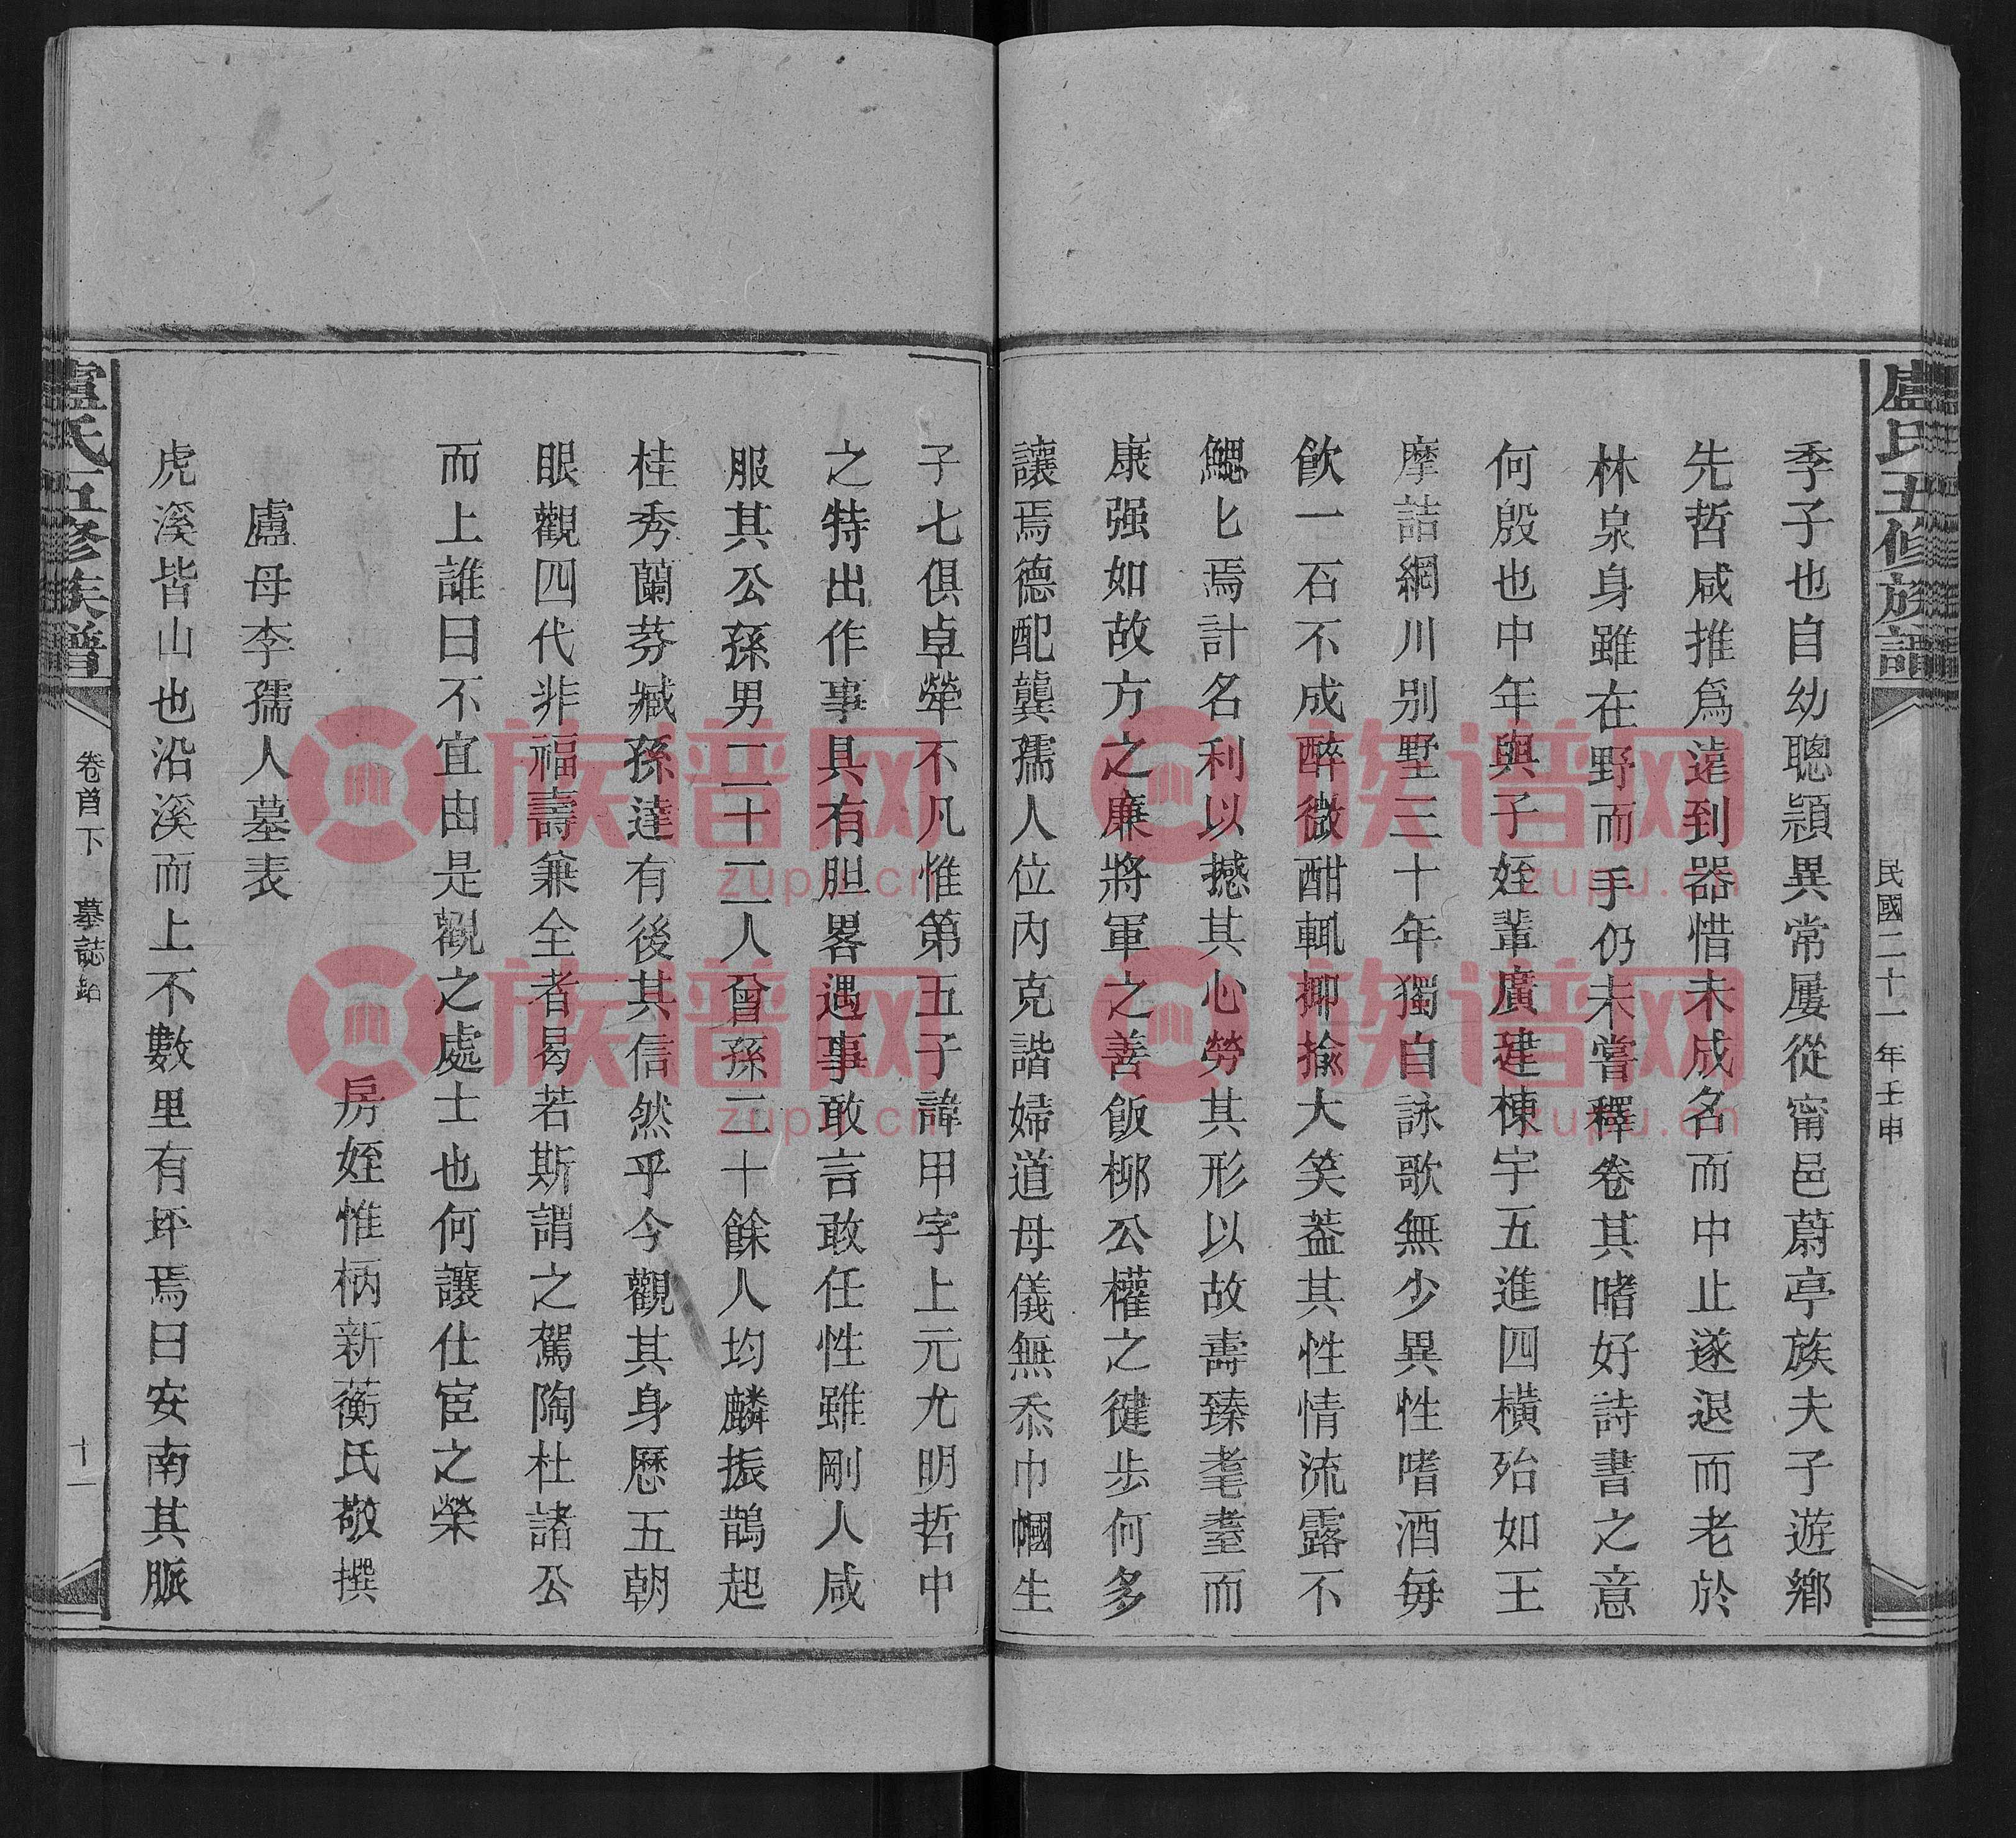 盧氏五修族譜
民國二十一年壬申
季子也自幼聰穎異常屢從甯邑蔚亭族夫子遊鄉
先哲咸推爲遠到器惜未成名而中止遂退而老於
林泉身雖在野而手仍未嘗釋卷其嗜好詩書之意
何殷也中年與子姪輩廣建棟宇五進四橫殆如王
摩詰網川别墅三十年獨自詠歌無少異性嗜酒每
飲一石不成醉微酣輒抑揄大笑葢其性情流露不
鰓匕焉計名利以撼其心勞其形以故壽臻耄耋而
康强如故方之廉將軍之善飯栁公權之健步何多
讓焉德配龔孺人位內克諧婦道母儀無忝巾幗生
子七俱卓犖不凡惟第五子諱甲字上元尤明哲中
之特出作事具有胆畧遇事敢言敢任性雖剛人咸
服其公孫男二十二人曾孫二十餘人均麟振鵲起
桂秀蘭芬臧孫達有後其信然乎今觀其身歷五朝
眼觀四代非福壽兼全者曷若斯謂之駕陶杜諸公
而上誰曰不宜由是觀之處士也何讓仕宦之榮
房姪惟柄新蘅氏敬撰
盧母李孺人墓表
虎溪皆山也沿溪而上不數里有坪焉曰安南其脈
盧氏五修族譜
卷首下
墓誌銘
十一
族谱网
zupu.cn
族谱网
zupu.cn
族谱网
zupu.cn
族谱网
zupu.cn